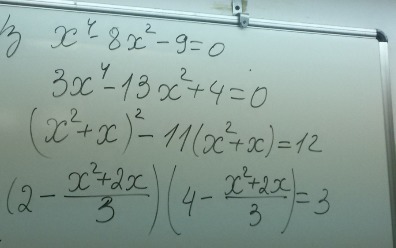 x⁴ - 8x² - 9 = 0
3x⁴ - 13x² + 4 = 0
(x² + x)² - 11(x² + x) = 12
(2 - (x² + 2x)/3)(4 - (x² + 2x)/3) = 3